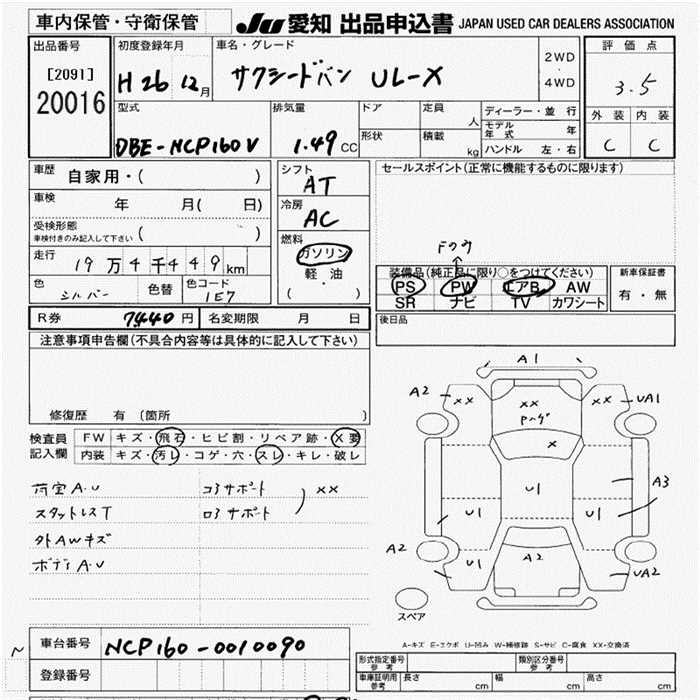 車内保管・守衛保管
JU 愛知 出品申込書 JAPAN USED CAR DEALERS ASSOCIATION
出品番号 初度登録年月 車名・グレード 評価点
[2091]
20016
H 26 12月
サクシードバン UL-X
2WD
・
4WD
3.5
型式 排気量 ドア 定員 人 ディーラー・並行
外装 内装
DBE-NCP160V 1.49 CC
形状 積載 kg モデル年式 年
ハンドル 左・右
C C
車歴 自家用・( )
シフト AT
セールスポイント(正常に機能するものに限ります)
車検 年 月( 日)
冷房 AC
受検形態
車検付きのみ記入して下さい ( )
燃料
ガソリン
軽・油
( ・ )
走行 19万4千449km
色 シルバー 色替 色コード 1E7
Fのみ
装備品(純正品に限り○をつけてください) 新車保証書
PS PW エアB. AW
SR ナビ TV カワシート
有・無
R券 7440円 名変期限 月 日
後日品
注意事項申告欄(不具合内容等は具体的に記入して下さい)
修復歴 有 (箇所
検査員 FW キズ・飛石・ヒビ割・リペア跡・X要
記入欄 内装 キズ・汚レ・コゲ・穴・スレ・キレ・破レ
荷室A.U コアサポート
スタットレスT ロアサポート ) ××
外AWキズ
ボディA.U
A1
A2 ×× ×× ×× UA1
×
U1 U1 U1 A3
A2 U1 A2 UA2
スペア
A-キズ E-エクボ U-凹み W-補修跡 S-サビ C-腐食 XX-交換済
車台番号 NCP160-0010090
登録番号
形式指定番号 参考 類別区分番号 参考
車庫証明用 参考 長さ cm 幅 cm 高さ cm